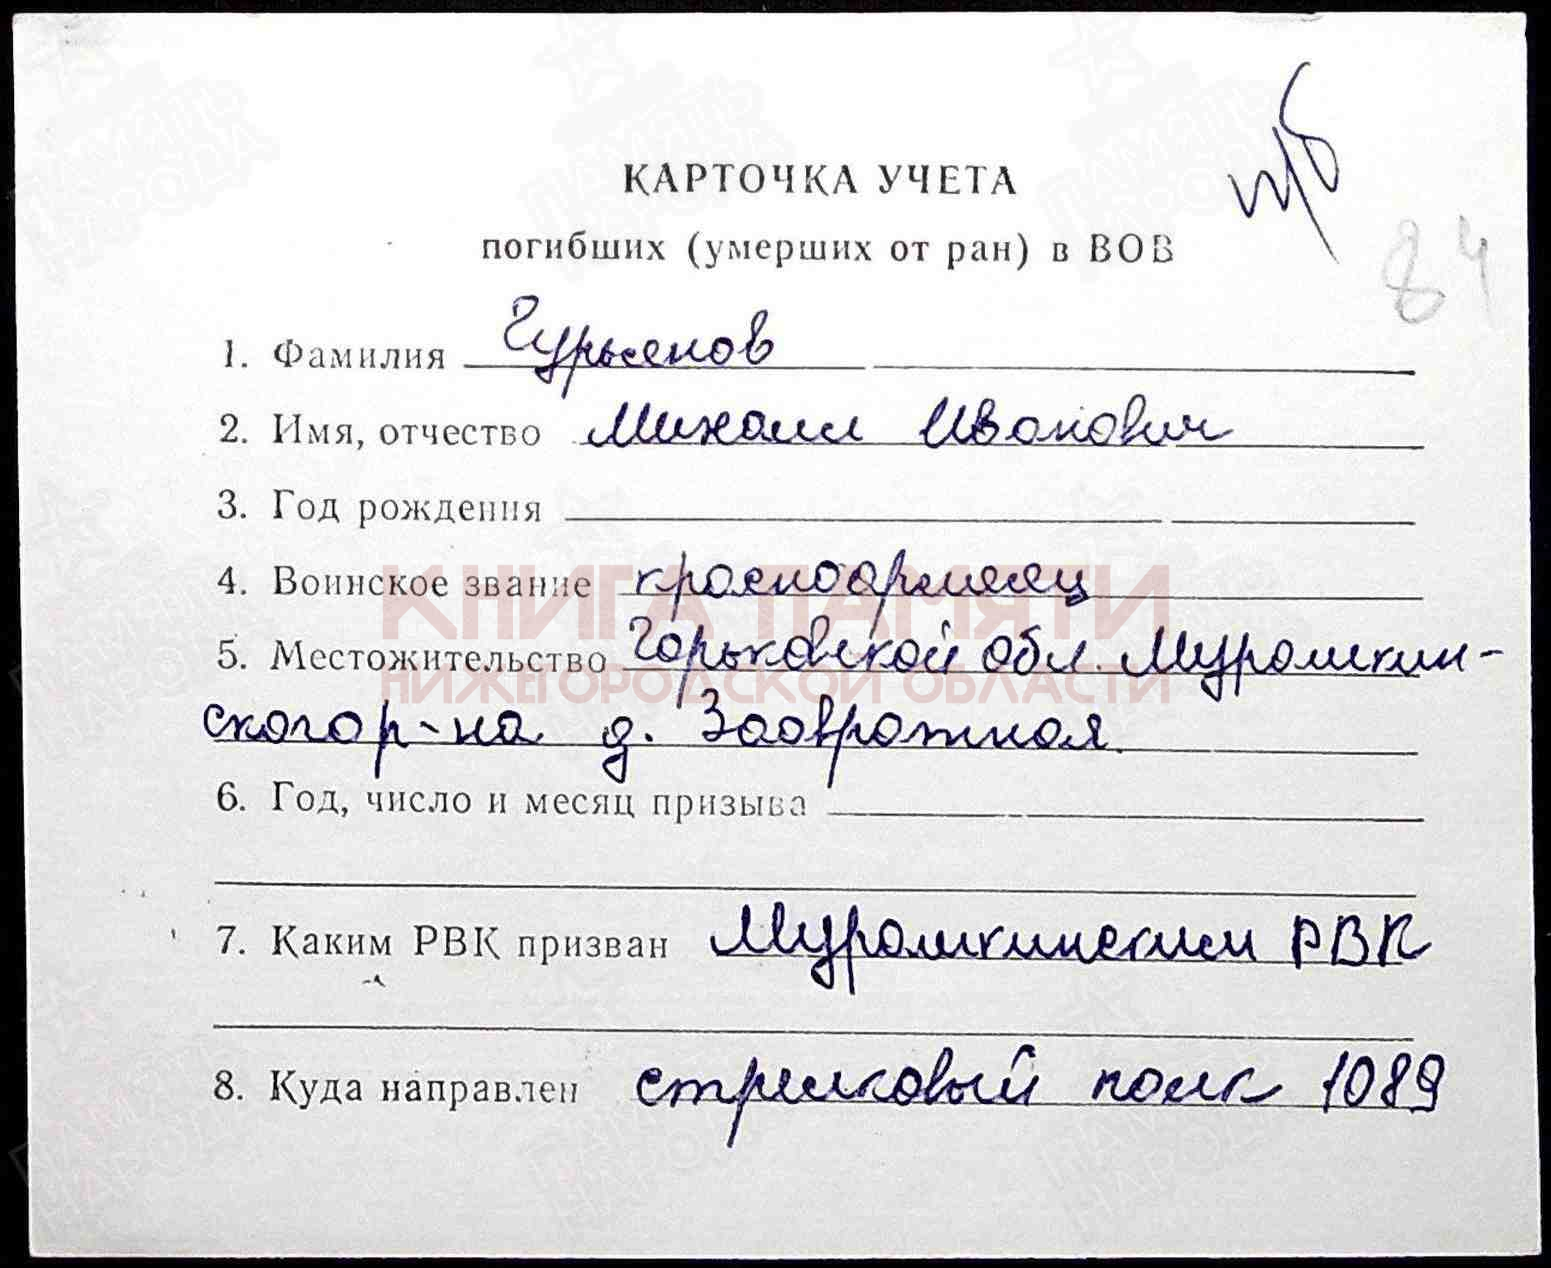 п/б
КАРТОЧКА УЧЕТА
84
погибших (умерших от ран) в ВОВ
1. Фамилия Гурьянов
2. Имя, отчество Михаил Иванович
3. Год рождения
4. Воинское звание красноармеец
КНИГА ПАМЯТИ
5. Местожительство Горьковской обл. Мурашкин-
НИЖЕГОРОДСКОЙ ОБЛАСТИ
ского р-на д. Заовражная
6. Год, число и месяц призыва
7. Каким РВК призван Мурашкинским РВК
8. Куда направлен стрелковый полк 1089